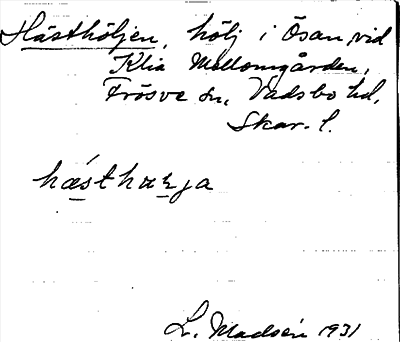 Hästhöljen, hölj i Ösan, vid
Klia Mellomgården,
Frösve sn, Vadsbo hd,
Skar. l.
L. Madsén 1931